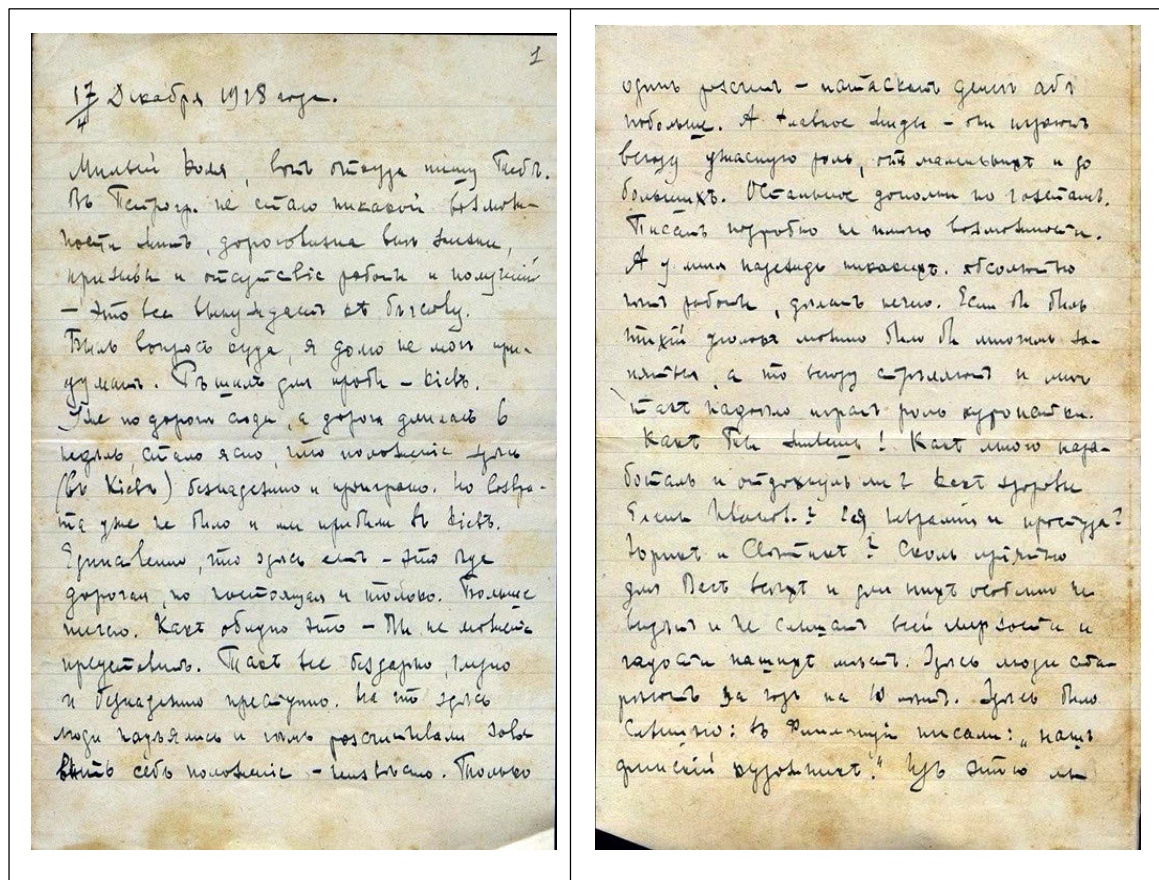 1
17/4 Декабря 1918 года.
Милый Коля, вотъ откуда пишу Тебѣ.
Въ Петрогр. не стало никакой возмож-
ности жить, дороговизна вся жизни,
призывы и отсутствіе работы и получкій
— это все вынуждаетъ къ бѣгству.
Былъ вопросъ куда, я долго не могъ при-
думать. Рѣшилъ для пробы — Кіевъ.
Уже по дорогѣ сюда, а дорога длилась 6
недѣль, стало ясно, что положеніе здѣсь
(въ Кіевѣ) безнадежно и проиграно. Но возвра-
та уже не было и мы прибыли въ Кіевъ.
Единственно, что здѣсь есть — это ѣда
дорогая, но настоящая и только. Больше
ничего. Какъ обидно это — Ты не можешь
представить. Такъ все бездарно, глупо
и безнадежно преступно. На что здѣсь
люди надѣялись и чѣмъ расчитывали
себѣ положеніе — неизвѣстно. Только
одинъ расчетъ — натаскать денегъ абы
побольше. А главное жиды — они играютъ
всюду ужасную роль, отъ маленькихъ и до
большихъ. Остальное дополни по газетамъ.
Писать подробно не имѣю возможности.
А у меня надеждъ никакихъ. Абсолютно
нѣтъ работы, дѣлать нечего. Если бы былъ
тихій уголокъ можно было бы многимъ за-
няться, а то всюду стрѣляютъ и мнѣ
такъ надоѣло играть роль куропатки.
Какъ Ты живешь! Какъ много нара-
боталъ и отдохнулъ ли? Какъ здоровье
Елены Иванов.? Ея невралгія и простуда?
Юрикъ и Светикъ? Сколь пріятно
для Васъ всѣхъ и для нихъ особенно не
видѣть и не слышать всей мерзости и
гадости нашихъ мѣстъ. Здѣсь люди ста-
рѣютъ за годъ на 10 лѣтъ. Здѣсь было
слышно: въ Финляндіи писали: „нашъ
финскій художникъ“. Изъ этого мы